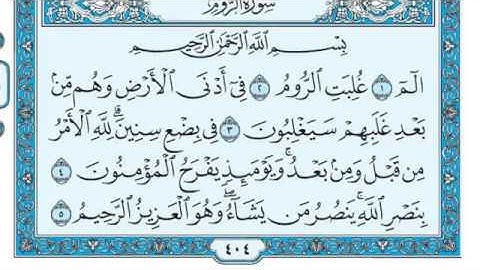 سُورَةُ الرُّومِ
بِسْمِ اللَّهِ الرَّحْمَٰنِ الرَّحِيمِ
الٓمٓ ۝١ غُلِبَتِ الرُّومُ ۝٢ فِىٓ أَدْنَى الْأَرْضِ وَهُم مِّنۢ
بَعْدِ غَلَبِهِمْ سَيَغْلِبُونَ ۝٣ فِى بِضْعِ سِنِينَ ۗ لِلَّهِ الْأَمْرُ
مِن قَبْلُ وَمِنۢ بَعْدُ ۚ وَيَوْمَئِذٍ يَفْرَحُ الْمُؤْمِنُونَ ۝٤
بِنَصْرِ اللَّهِ ۚ يَنصُرُ مَن يَشَآءُ ۖ وَهُوَ الْعَزِيزُ الرَّحِيمُ ۝٥
٤٠٤